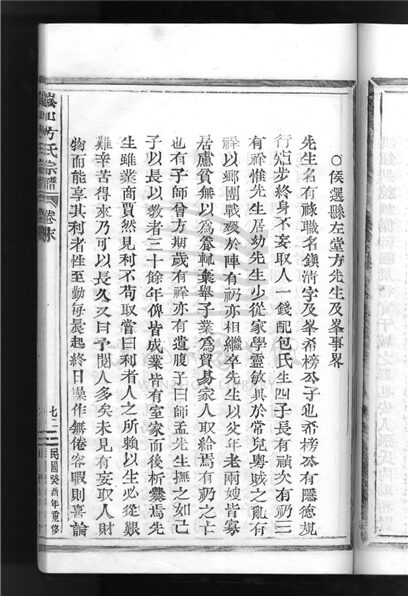 ○候選縣左堂方先生及峯事畧
先生名有祿職名鎮清字及峯希榜公子也希榜公有隱德規
行矩步終身不妄取人一錢配包氏生四子長有禎次有礽三
有祥惟先生居幼先生少從家學靈敏異於常兒粵賊之亂有
祥以鄉團戰歿於陣有礽亦相繼卒先生以父年老兩嫂皆寡
居慮貧無以為養輒棄舉子業為貿易家人取給焉有礽之亡
也有子師曾方期歲有祥亦有遺腹子曰師孟先生撫之如己
子以長以教者三十餘年俾皆成業皆有室家而後析爨焉先
生雖業商賈然見利不苟取嘗曰利者人之所賴以生必從艱
難辛苦得來乃可以長久又曰予閱人多矣未見有妄取人財
物而能享其利者性至勤每晨起終日操作無倦容暇則喜論
方氏宗譜
卷末
七
民國癸酉年重修